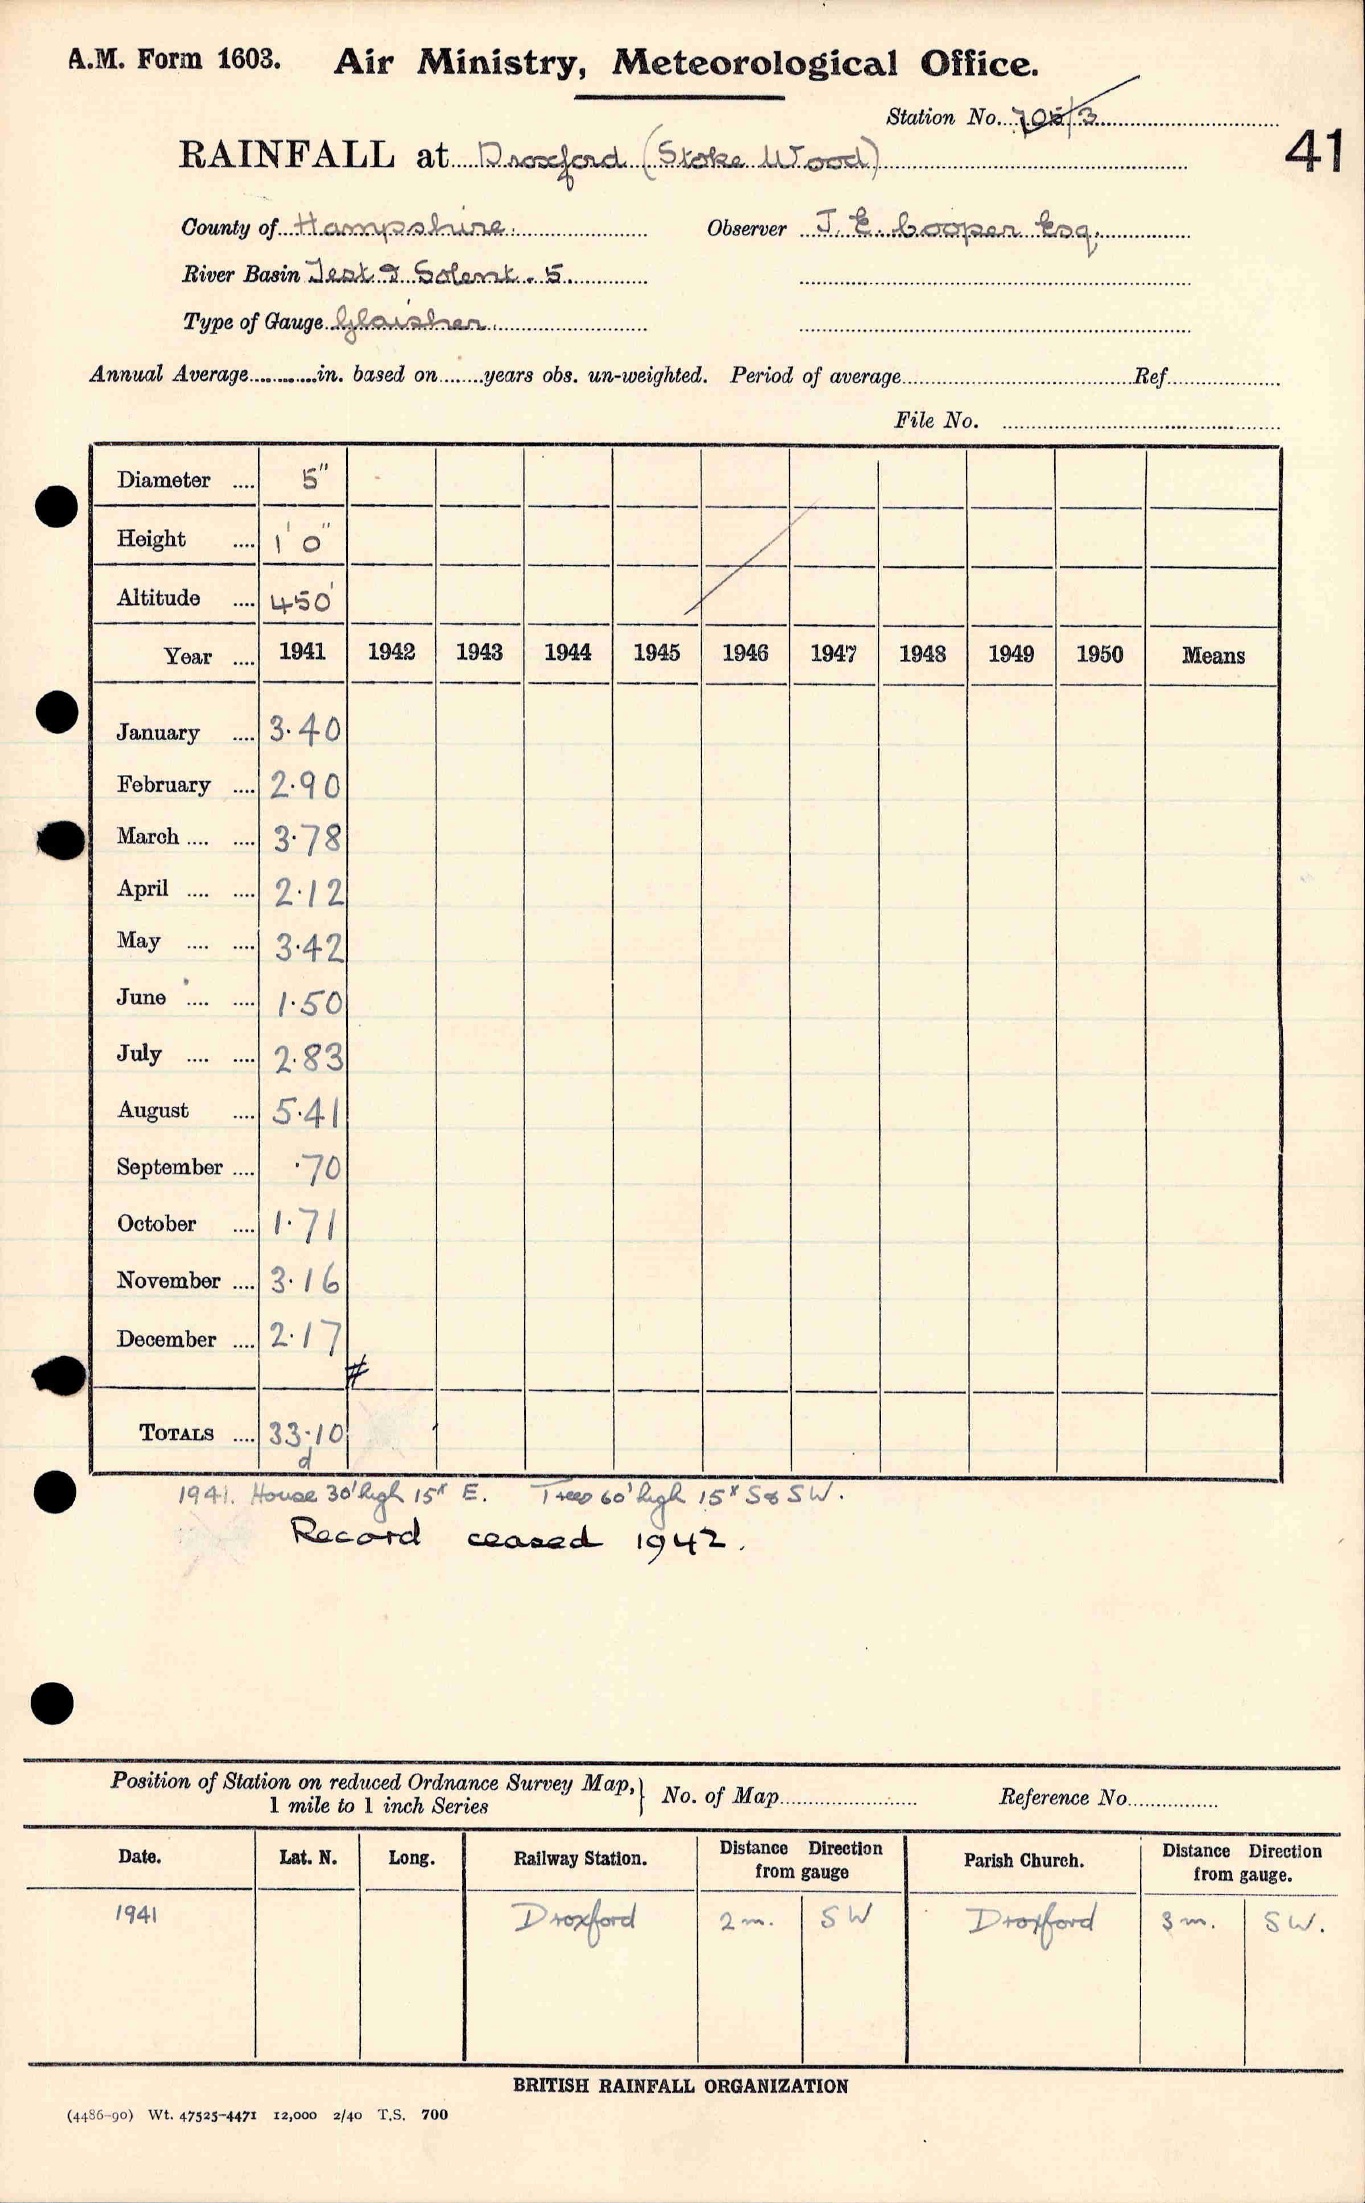 A.M. Form 1603. Air Ministry, Meteorological Office.
Station No. 705/3
41
RAINFALL at Droxford (Stoke Wood)
County of Hampshire. Observer J. E. Cooper Esq.
River Basin Test & Solent. 5.
Type of Gauge Glaisher.
Annual Average............in. based on........years obs. un-weighted. Period of average.......... Ref..........
File No. ..........
Diameter .... 5"
Height .... 1' 0"
Altitude .... 450'
Year .... 1941 1942 1943 1944 1945 1946 1947 1948 1949 1950 Means
January .... 3.40
February .... 2.90
March .... .... 3.78
April .... .... 2.12
May .... .... 3.42
June .... .... 1.50
July .... .... 2.83
August .... 5.41
September .... .70
October .... 1.71
November .... 3.16
December .... 2.17
#
TOTALS .... 33.10
d
1941. House 30' high 15x E. Trees 60' high 15x S & SW.
Record ceased 1942.
Position of Station on reduced Ordnance Survey Map, } No. of Map.......... Reference No..........
1 mile to 1 inch Series
Date. Lat. N. Long. Railway Station. Distance Direction from gauge Parish Church. Distance Direction from gauge.
1941 Droxford 2 m. SW Droxford 3 m. SW.
BRITISH RAINFALL ORGANIZATION
(4486-90) Wt. 47525-4471 12,000 2/40 T.S. 700